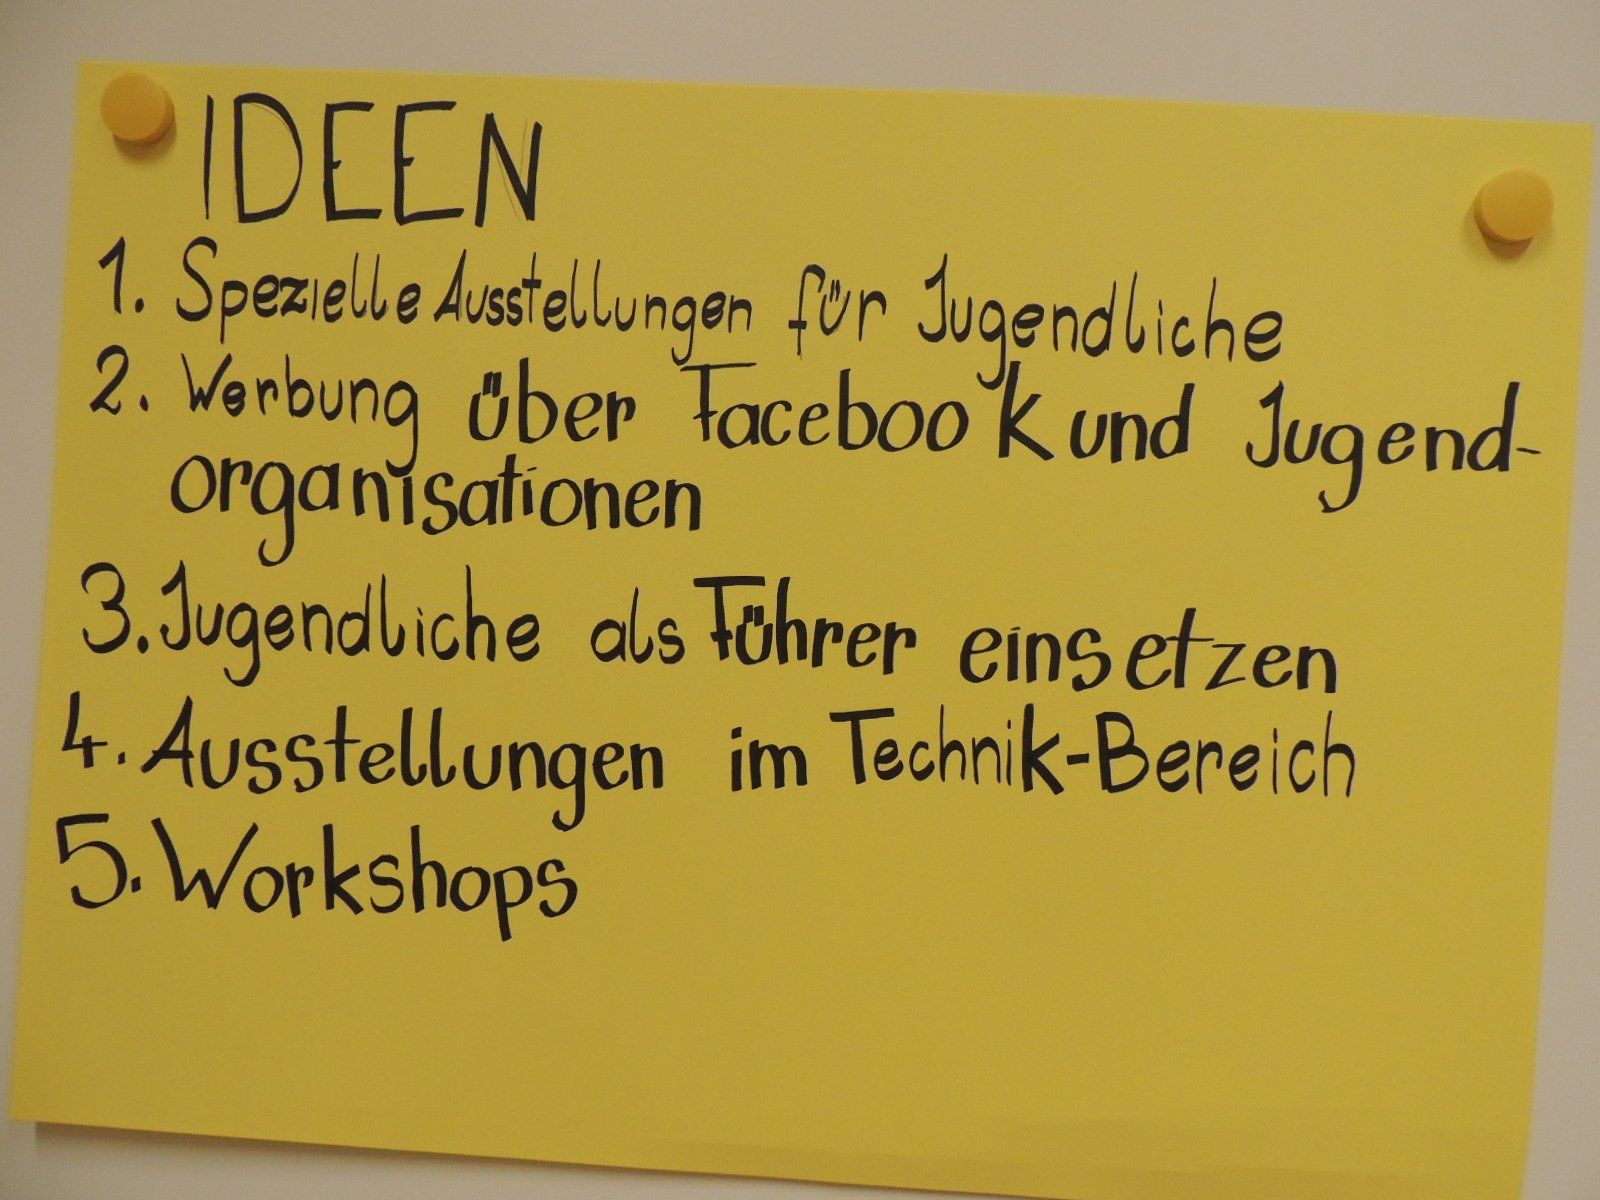 IDEEN
1. Spezielle Ausstellungen für Jugendliche
2. Werbung über Facebook und Jugend-
organisationen
3. Jugendliche als Führer einsetzen
4. Ausstellungen im Technik-Bereich
5. Workshops